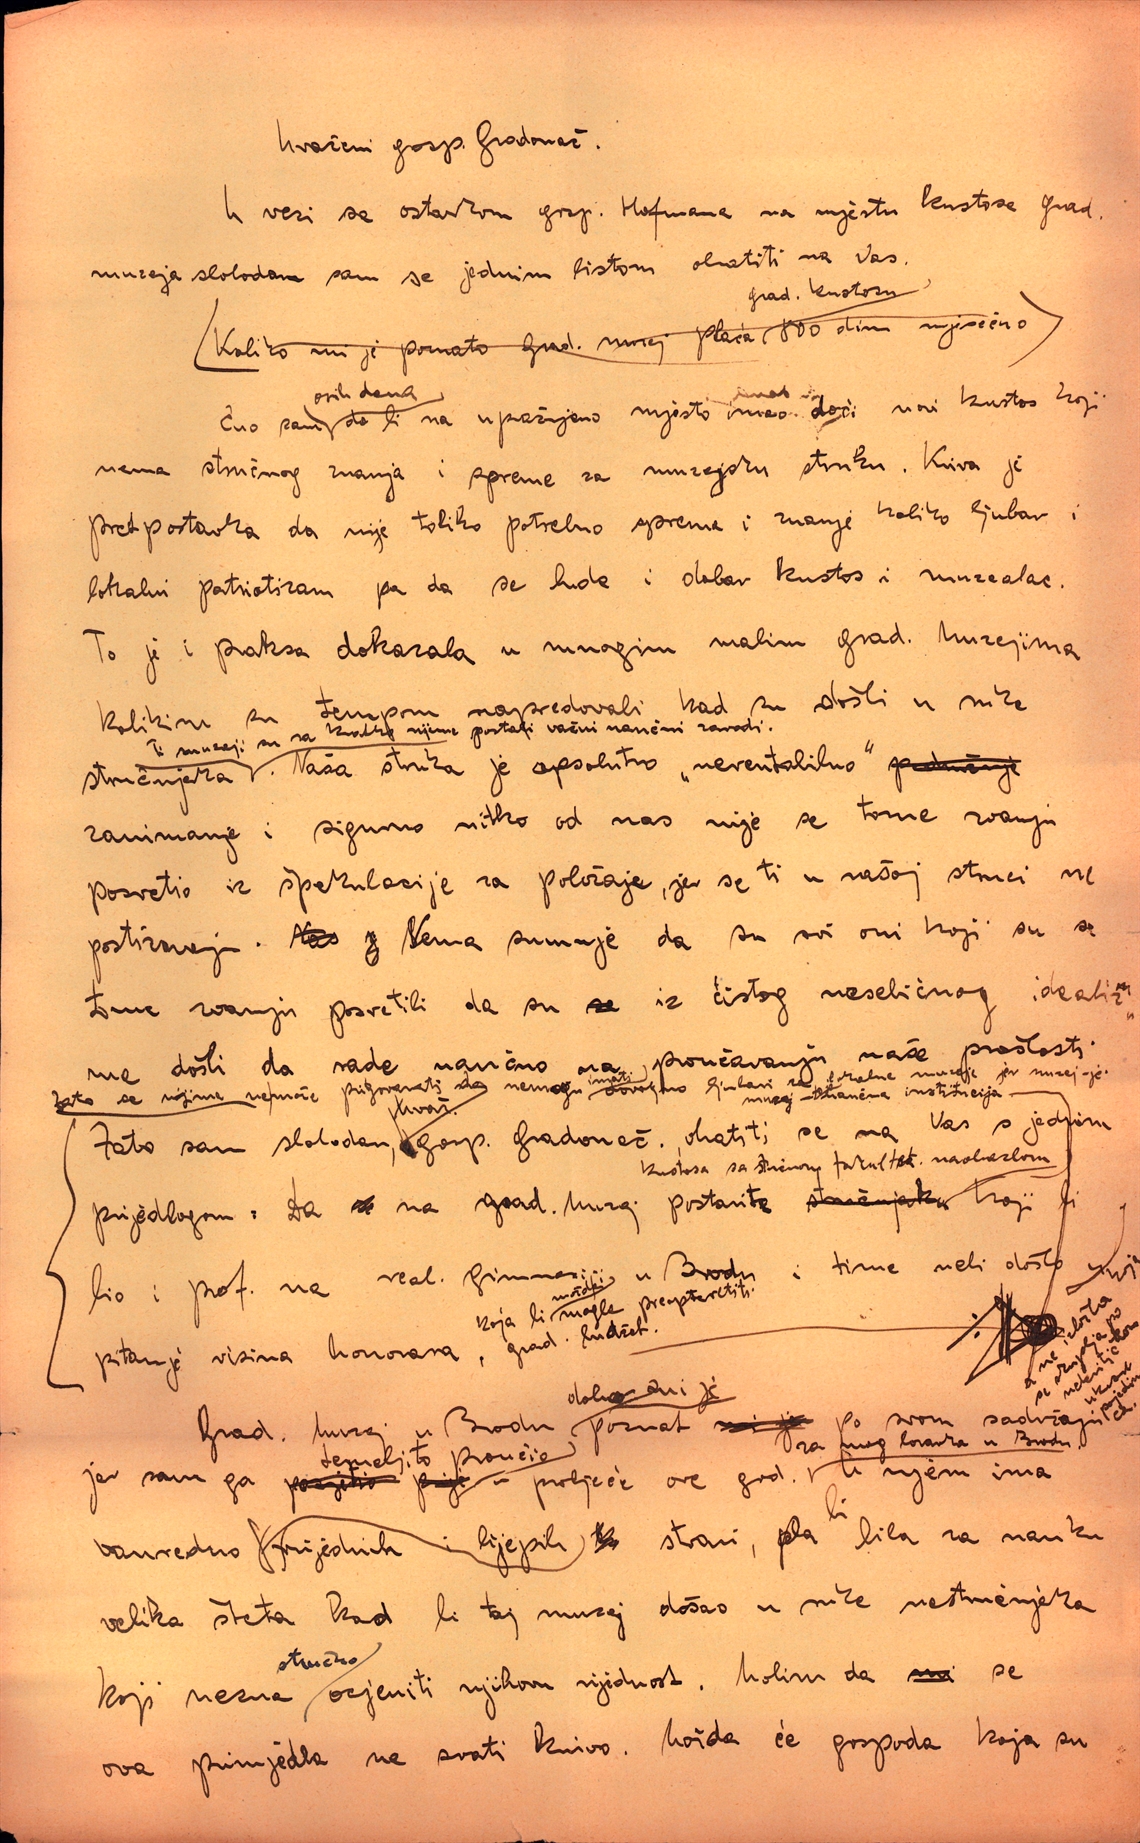 Uvaženi gosp. Gradonač.
U vezi sa ostavkom gosp. Hofmana na mjestu kustosa grad.
muzeja slobodan sam se jednim listom obratiti na Vas.
grad. kustosu
(Koliko mi je poznato Grad. muzej plaća 800 din mjesečno)
ovih dana
Čuo sam da bi na upražnjeno mjesto imao doći novi kustos koji
nema stručnog znanja i spreme za muzejsku struku. Kriva je
predpostavka da nije toliko potrebno sprema i znanje koliko ljubav i
lokalni patriotizam pa da se bude i dobar kustos i muzealac.
To je i praksa dokazala u mnogim malim grad. muzejima
kolikim su tempom napredovali kad su došli u ruke
Ti muzeji su za kratko vrijeme postali važni naučni zavodi.
stručnjaka. Naša struka je apsolutno „nerentabilno" područje
zanimanje i sigurno nitko od nas nije se tome zvanju
posvetio iz špekulacije za položaje, jer se ti u našoj struci ne
postizavaju. Nema sumnje da su svi oni koji su se
tome zvanju posvetili da su se iz čistog nesebičnog idealiz-
ma došli da rade naučno na proučavanju naše prošlosti.
Zato se njima nemože prigovarati da nemogu imati dovoljno ljubavi za lokalne muzeje jer muzej je
muzej institucija
uvaž.
Zato sam slobodan, gosp. Gradonač. obratiti se na Vas s jednim
kustosa sa stručnom fakultet. naobrazbom
prijedlogom: Da se na grad. muzej postavite stručnjaka koji bi
bio i prof. na real. gimnaziji u Brodu i time nebi došlo u
pitanje visina honorara,
koja bi mogla preopteretiti
grad. budžet.
a ne izložba
dobro mi je
Grad. muzej u Brodu poznat mi je po svom sadržaju
temeljito proučio
za mog boravka u Brodu.
jer sam ga posjetio prije u proljeće ove god. U njem ima
vanredno vrijednih i lijepih stvari, pa bi bila za nauku
velika šteta kad bi taj muzej došao u ruke nestručnjaka
stručno
koji nezna ocjeniti njihovu vrijednost. Molim da se
ova primjedba ne svati krivo. Možda će gospoda koja su